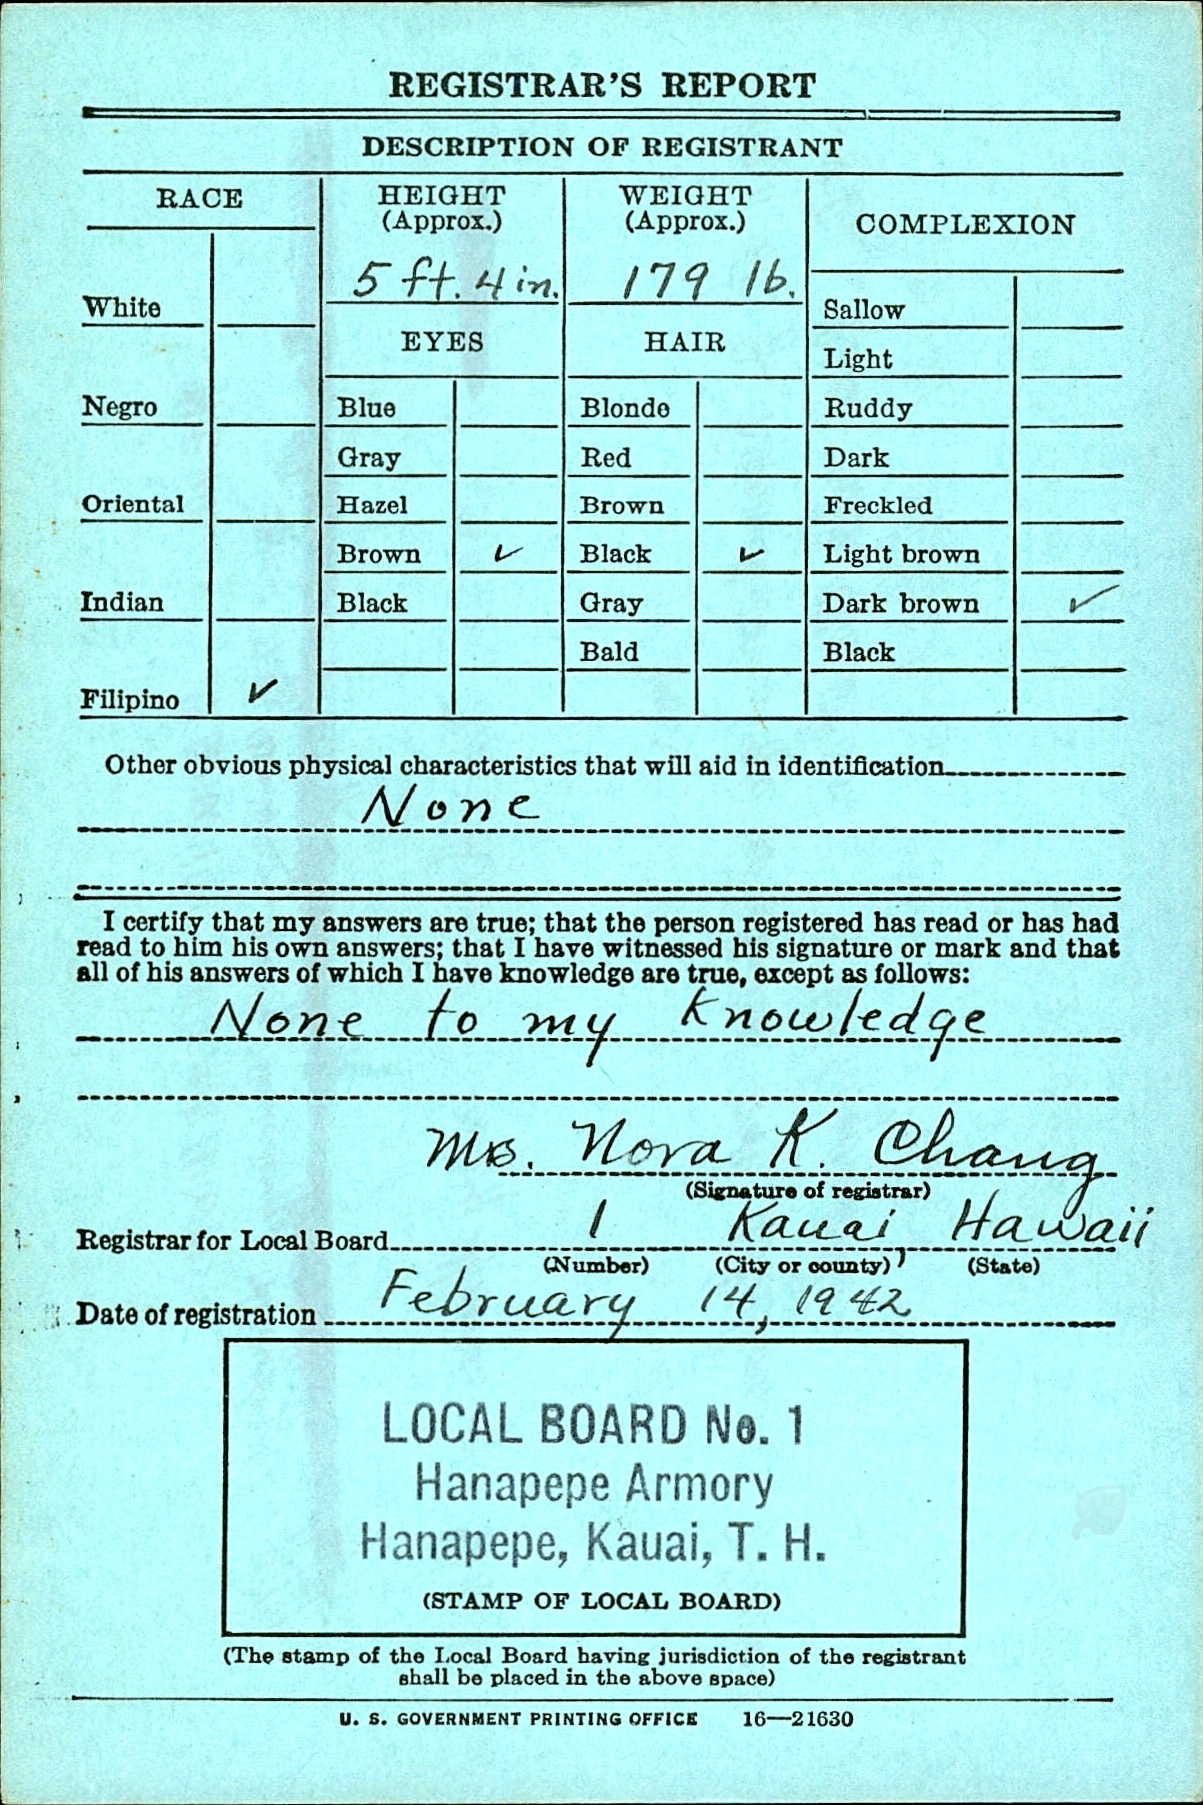 REGISTRAR'S REPORT
DESCRIPTION OF REGISTRANT
RACE
HEIGHT
(Approx.)
WEIGHT
(Approx.)
COMPLEXION
5 ft. 4 in.
179 lb.
White
Sallow
EYES
HAIR
Light
Negro
Blue
Blonde
Ruddy
Gray
Red
Dark
Oriental
Hazel
Brown
Freckled
Brown ✓
Black ✓
Light brown
Indian
Black
Gray
Dark brown ✓
Bald
Black
Filipino ✓
Other obvious physical characteristics that will aid in identification
None
I certify that my answers are true; that the person registered has read or has had
read to him his own answers; that I have witnessed his signature or mark and that
all of his answers of which I have knowledge are true, except as follows:
None to my knowledge
Mrs. Nora K. Chang
(Signature of registrar)
Registrar for Local Board 1 Kauai, Hawaii
(Number) (City or county) (State)
Date of registration February 14, 1942
LOCAL BOARD No. 1
Hanapepe Armory
Hanapepe, Kauai, T. H.
(STAMP OF LOCAL BOARD)
(The stamp of the Local Board having jurisdiction of the registrant
shall be placed in the above space)
U. S. GOVERNMENT PRINTING OFFICE 16—21630